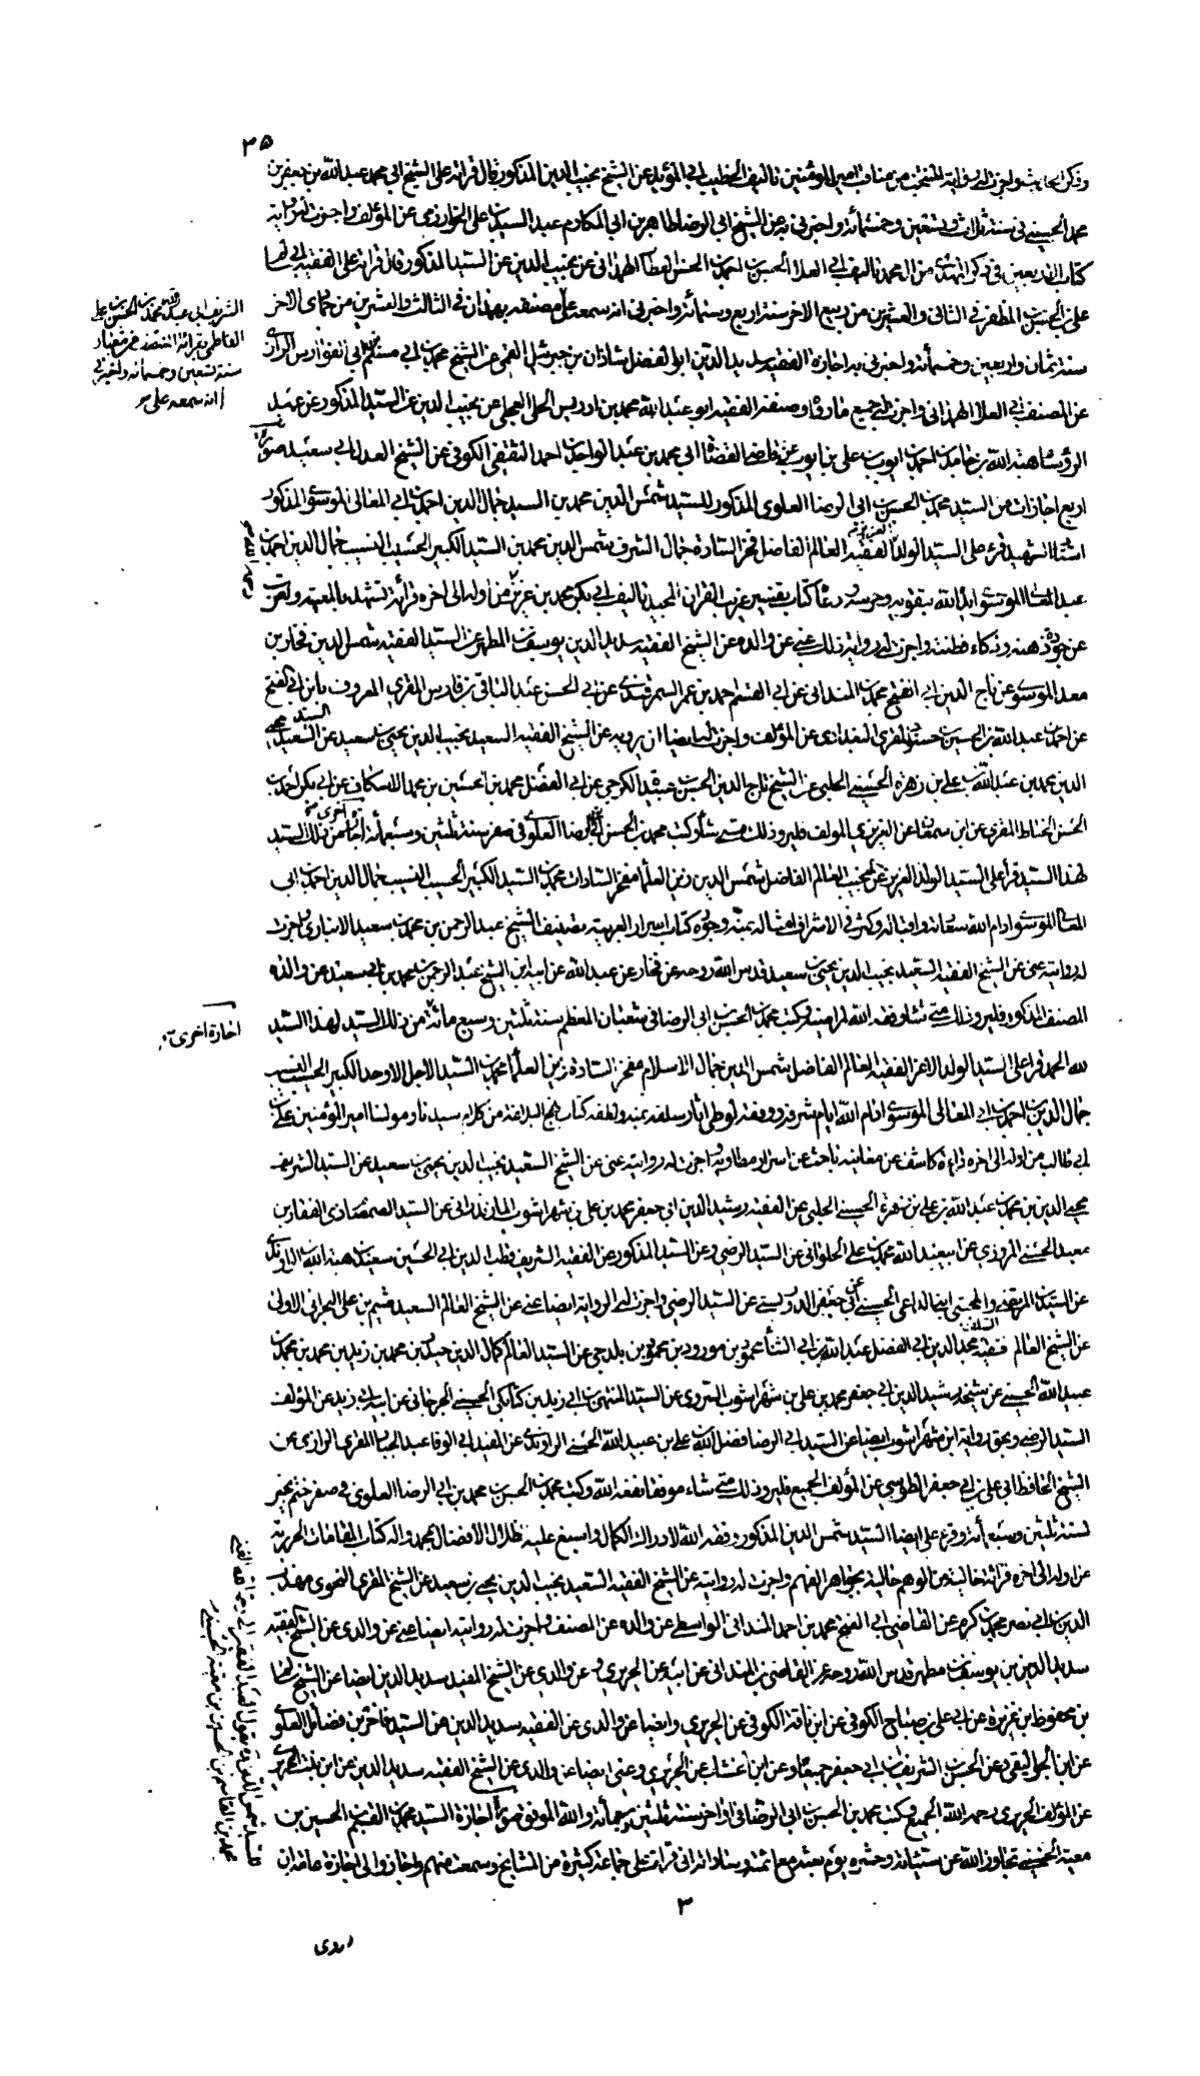 ٣٥
وذكر انه اجاز له رواية المنتخب من مناقب امير المؤمنين تأليف الخطيب ابي المؤيد عن الشيخ نجيب الدين المذكور قال قرأته على الشيخ ابي محمد عبد الله بن جعفر بن
محمد الحسيني في سنة ثلاث وتسعين وخمسمائة واخبرني به عن الشيخ ابي الرضا طاهر بن ابي المكارم عبد السيد بن علي الخوارزمي عن المؤلف واجزت له رواية
كتاب الاربعين في ذكر المهدي من آل محمد تأليف ابي العلا الحسن بن احمد بن الحسن العطار الهمداني عن نجيب الدين عن السيد المذكور قال قرأته على الفقيه
علي بن الحسين المظفر في الثاني والعشرين من ربيع الاخر سنة اربع وستمائة واخبرني انه سمعه على مصنفه بهمدان في الثالث والعشرين من جمادى الاخر
سنة ثمان واربعين وخمسمائة واخبرني به اجازة الفقيه سديد الدين ابو الفضل شاذان بن جبرئيل القمي عن الشيخ محمد بن ابي مسلم بن ابي الفوارس الرازي
عن المصنف ابي العلا الهمداني واجزت له جميع ما رواه وصنفه الفقيه ابو عبد الله محمد بن ادريس الحلي العجلي عن نجيب الدين عن السيد المذكور عن عميد
الرؤساء هبة الله بن حامد بن احمد بن ايوب بن علي بن ايوب عن قاضي القضاة ابي محمد بن عبد الواحد بن احمد الثقفي الكوفي عن الشيخ العدل ابي سعيد صورة
اربع اجازات من السيد محمد بن الحسن بن ابي الرضا العلوي المذكور للسيد شمس الدين محمد بن السيد جمال الدين احمد بن ابي المعالي الموسوي المذكور
استاد الشهيد قرء علي السيد الولد العزيز الفقيه العالم الفاضل فخر السادة جمال الشرف شمس الدين محمد بن السيد الكبير الحسيب النسيب جمال الدين احمد بن
ابي المعالي الموسوي ايده الله بتقويه وحرسه ورعاه كتاب تفسير غريب القران المجيد تأليف ابي بكر محمد بن عزيز من اوله الى اخره قرائة تشهد بالمعيته وتعرب
عن جودة ذهنه وذكاء فطنته واجزت له رواية ذلك عني عن والده عن الشيخ الفقيه سديد الدين يوسف بن المطهر عن السيد الفقيه شمس الدين فخار بن
معد الموسوي عن تاج الدين ابي الفتح محمد بن المنداني عن ابي القسم احمد بن عمر السمرقندي عن ابي الحسن عبد الباقي بن فارس المقري المعروف بابن ابي الفتح
عن احمد بن عبد الله بن الحسين بن حسنون المقري البغدادي عن المؤلف واجزت له ايضا ان يرويه عن الشيخ الفقيه السعيد نجيب الدين يحيى بن سعيد عن السيد السعيد محيي
الدين محمد بن عبد الله بن علي بن زهرة الحسيني الحلبي عن الشيخ تاج الدين الحسن بن الكرجي عن ابي الفضل محمد بن الحسين بن محمد الاسكاف عن ابي بكر احمد بن
الحسن الخياط المقري عن ابن سمعان عن العزيزي المؤلف فليرو ذلك متى شاء وكتب محمد بن الحسن بن ابي الرضا العلوي في صفر سنة ثلثين وسبعمائة اجازة اخرى من ذلك السيد
لهذا السيد قرأ علي السيد الولد العزيز النجيب العالم الفاضل شمس الدين زين العلما مفخر السادات محمد بن السيد الكبير الحسيب النسيب جمال الدين احمد بن ابي
المعالي الموسوي ادام الله سعادته واقباله وكثر في الاشراف امثاله بمنه وجوده كتاب اسرار العربية تصنيف الشيخ عبد الرحمن بن محمد بن سعيد الانباري واجزت
له روايته عني عن الشيخ الفقيه السعيد نجيب الدين يحيى بن سعيد قدس الله روحه عن فخار عن عبد الله عن ابيه ابن الشيخ عبد الرحمن بن محمد بن ابي سعيد عن والده
المصنف المذكور فليرو ذلك متى شاء وفقه الله لمراضيه وكتب محمد بن الحسن بن ابي الرضا في شعبان المعظم سنة ثلثين وسبع مائة من ذلك السيد لهذا السيد
لله الحمد قرا علي السيد الولد الاعز الفقيه العالم الفاضل شمس الدين جمال الاسلام مفخر السادة زين العلما محمد بن السيد الاجل الاوحد الكبير الحسيب النسيب
جمال الدين احمد بن ابي المعالي الموسوي ادام الله ايام شرفه ووفقه لوطي اثار سلفه بمنه ولطفه كتاب نهج البلاغة من كلام سيدنا ومولينا امير المؤمنين علي بن
ابي طالب من اوله الى اخره قراءة كاشف عن معانيه باحث عن اسراره مطاويه واجزت له روايته عني عن الشيخ السعيد نجيب الدين يحيى بن سعيد عن السيد الشريف
محيي الدين بن محمد بن عبد الله بن علي بن زهرة الحسيني الحلبي عن الفقيه رشيد الدين ابي جعفر محمد بن علي بن شهراشوب المازندراني عن السيد الصمصام ذي الفقار بن
معبد الحسني المروزي عن ابي عبد الله محمد بن علي الحلواني عن السيد الرضي وعن السيد المذكور عن الفقيه الشريف قطب الدين ابي الحسين سعيد بن هبة الله بن الراوندي
عن السيدين المرتضى والمجتبى ابنا الداعي الحسيني عن ابي جعفر الدوريستي عن السيد الرضي واجزت له الرواية ايضا عني عن الشيخ العالم السعيد ميثم بن علي البحراني الاولى
عن الشيخ العالم فقيه مجد الدين ابي الفضل عبد الله بن ابي الثناء محمود بن مورود بن محمود بن بلدجي عن السيد العالم كمال الدين حيدر بن محمد بن زيد بن محمد بن محمد بن
عبيد الله الحسيني عن شيخه رشيد الدين ابي جعفر محمد بن علي بن شهراشوب السروي عن السيد المنتهى بن ابي زيد بن كيابكي الحسيني الجرجاني عن ابيه ابي زيد عن المؤلف
السيد الرضي وبحق رواية ابن شهراشوب ايضا عن السيد ابي الرضا فضل الله بن علي بن عبيد الله الحسني الراوندي عن المفيد ابي الوفا عبد الجبار المقري الرازي عن
الشيخ الحافظ ابي علي عن ابي جعفر الطوسي عن المؤلف الجميع فليرو ذلك متى شاء موفقا نفعه الله وكتب محمد بن الحسن بن محمد بن ابي الرضا العلوي في صفر ختم بخير
لسنة ثلثين وسبعمائة وقرء علي ايضا السيد شمس الدين المذكور وفقه الله لادراك الكمال واسبغ عليه ظلال الافضال بمحمد واله كتاب المقامات الحريرية
من اوله الى اخره قرائة خالية من الوهم حالية بجواهر الفهم واجزت له روايته عن الشيخ الفقيه السعيد نجيب الدين يحيى بن سعيد عن الشيخ المقري النحوي مهذب
الدين ابي نصر محمد بن كرم عن القاضي ابي الفتح محمد بن احمد المنداني الواسطي عن والده عن المصنف واجزت له روايته ايضا عني عن والدي عن الشيخ الفقيه
سديد الدين بن يوسف بن مطهر قدس الله روحه عن القاضي بن المنداني عن ابيه عن الحريري وعن والدي عن الشيخ المفيد سديد الدين ايضا عن الشيخ
بن محفوظ ابن عزيزة عن ابي علي بن صباح الكوفي عن ابن ناقة الكوفي عن الحريري وايضا عن والدي عن الفقيه سديد الدين عن السيد فاخر بن فضائل العلوي
عن ابن الجواليقي وعن الحسن بن الشريف ابي جعفر جميعا وعن ابن الخشاب عن الحريري وعني ايضا عن والدي عن الشيخ الفقيه سديد الدين عن ابن بنت الحريري
عن المؤلف الحريري رحمه الله الجميع وكتب محمد بن الحسن بن ابي الرضا في اواخر سنة ثلثين وسبعمائة والله الموفق صورة اجازة السيد محمد بن القسم بن الحسين بن
معية الحسيني تجاوز الله عن سيئاته وحشره يوم بعثه مع ائمته وساداته اني قرات على جماعة كثيرة من المشايخ وسمعت منهم واجازوا لي اجازة
٣
اروي
الشريف ابي عبد الله محمد بن الحسن بن علي
الفاطمي بقرائة في شهر
سنة تسعين وخمسمائة واخبرني
انه سمعه على
اجازة اخرى